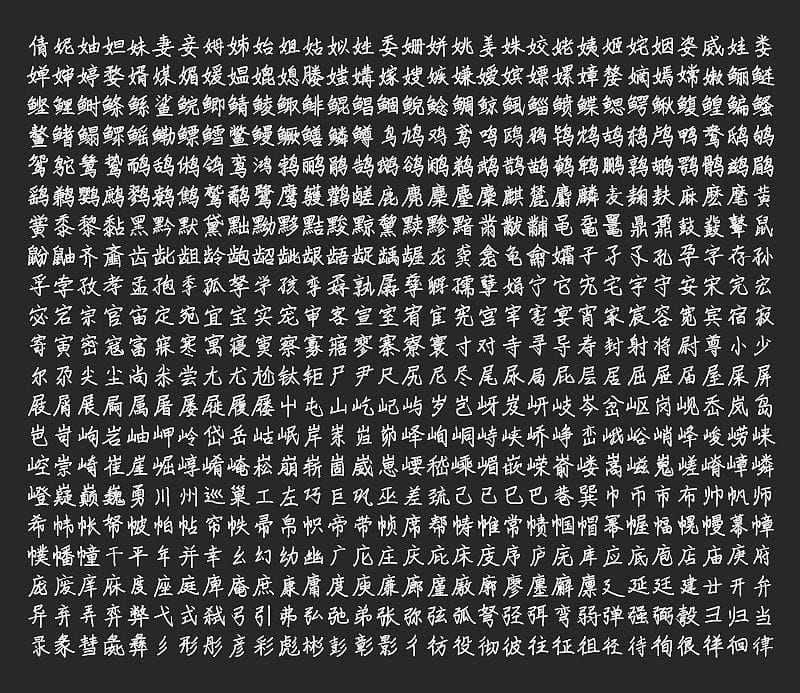 倩妮妯妲妹妻妾姆姊始姐姑姒姓委姗姘姚姜姝姣姥姨姬姹姻姿威娃娄
婵婶婷婺婿媒媚媛媪媲媳媵媸媾嫁嫂嫉嫌嫒嫔嫖嫘嫜嫠嫡嫣嫦嫩
鲣鲤鲥鲦鲧鲨鲩鲫鲭鲮鲰鲱鲲鲳鲴鲵鲶鲷鲸鲺鲻鲼鲽鳃鳄鳅鳆鳇鳊鳋
鳌鳍鳎鳏鳐鳓鳔鳕鳖鳗鳜鳝鳞鳟鸟鸠鸡鸢鸣鸥鸦鸨鸩鸪鸫鸬鸭鸯鸱鸲
鸳鸵鸶鸷鸸鸹鸺鸽鸾鸿鹁鹂鹃鹄鹅鹆鹇鹈鹉鹊鹋鹌鹎鹏鹑鹕鹗鹘鹚鹛
鹞鹣鹦鹧鹨鹩鹪鹫鹬鹭鹰鹱鹳鹾鹿麂麇麈麋麒麓麝麟麦麸麻麽麾黄
黉黍黎黏黑黔默黛黜黝黟黠黢黥黧黩黪黯黹黻黼黾鼋鼍鼎鼐鼓鼗鼙鼠
鼢鼬齐齑齿龀龃龄龅龆龇龈龉龊龋龌龙龚龛龟龠孀子孑孓孔孕字存孙
孚孛孜孝孟孢季孤孥学孩孪孬孰孱孳孵孺孽娟宁它宄宅宇守安宋完宏
宓宕宗官宙定宛宜宝实宠审客宣室宥宦宪宫宰害宴宵家宸容宽宾宿寂
寄寅密寇富寐寒寓寝寞察寡寤寥寨寮寰寸对寺寻导寿封射将尉尊小少
尔尕尖尘尚尜尝尢尤尥尬钛钜尸尹尺尻尼尽尾尿局屁层居屈屉届屋屎屏
屐屑展屙属屠屡屣履屦屮屯山屹屺屿岁岂岈岌岍岐岑岔岖岗岘岙岚岛
岜岢岣岩岫岬岭岱岳岵岷岸峁峄峋峒峙峡峤峥峦峨峪峭峰峻崂崃
崆崇崎崔崖崛崞崤崦崧崩崭崮崴崽嵇嵊嵋嵌嵘嵛嵝嵩嵫嵬嵯嵴嶂嶙
嶝嶷巅巍勇川州巡巢工左巧巨巩巫差巯己已巳巴巷巽巾币市布帅帆师
希帏帐帑帔帕帖帘帙帚帛帜帝带帧席帮帱帷常帻帼帽幂幄幅幌幔幕幛
幞幡幢干平年并幸幺幻幼幽广庀庄庆庇床庋序庐庑库应底庖店庙庚府
庞废庠庥度座庭庳庵庶康庸庾廉廊廑廒廓廖廛廨廪延廷建廿开弁
异弃弄弈弊弋式弑弓引弗弘弛弟张弥弦弧弩弪弭弯弱弹强弼彀归当
录彖彗彘彝彡形彤彦彩彪彬彭彰影彳彷役彻彼往征徂径待徇很徉徊律